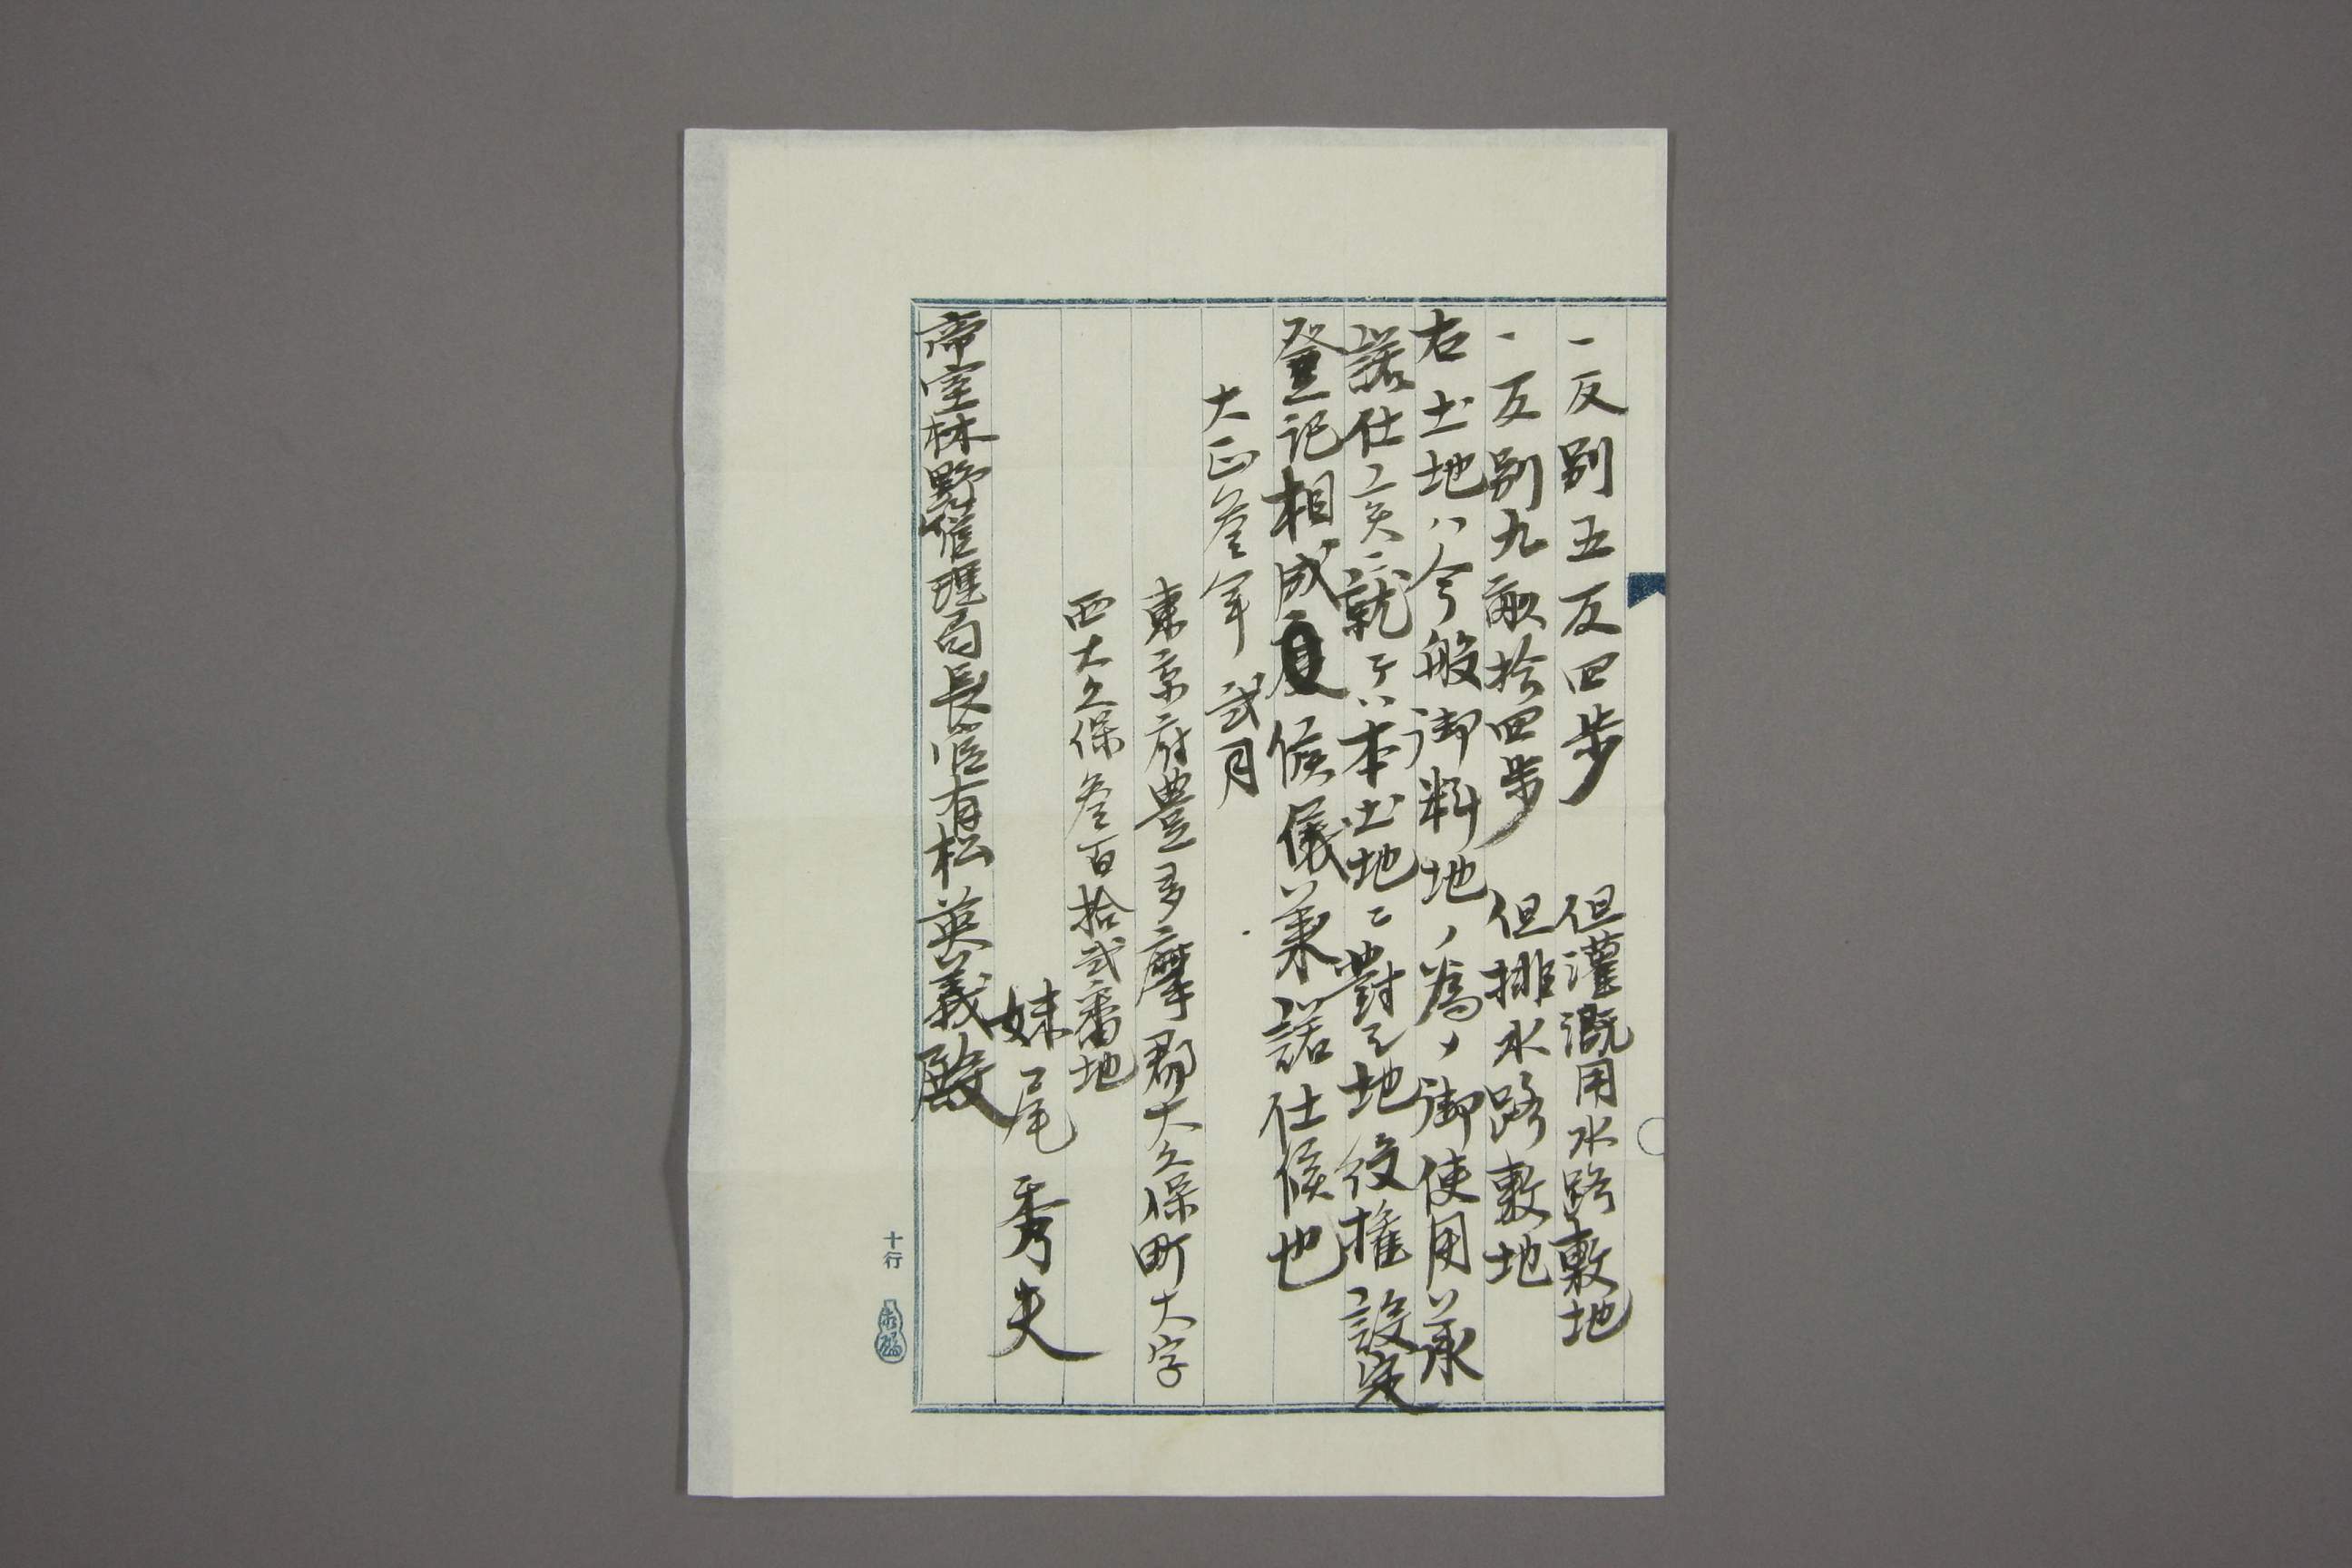 一反別五反四歩 但灌漑用水路敷地
一反別九畝拾四歩 但排水路敷地
右土地ハ今般御料地ノ為メ御使用承
諾仕候ニ就テハ本土地ニ對シ地役権設定
登記相成度候儀承諾仕候也
大正参年弐月
東京府豊多摩郡大久保町大字
西大久保参百拾弐番地
妹尾秀夫
帝室林野管理局長官有松英義殿
十行